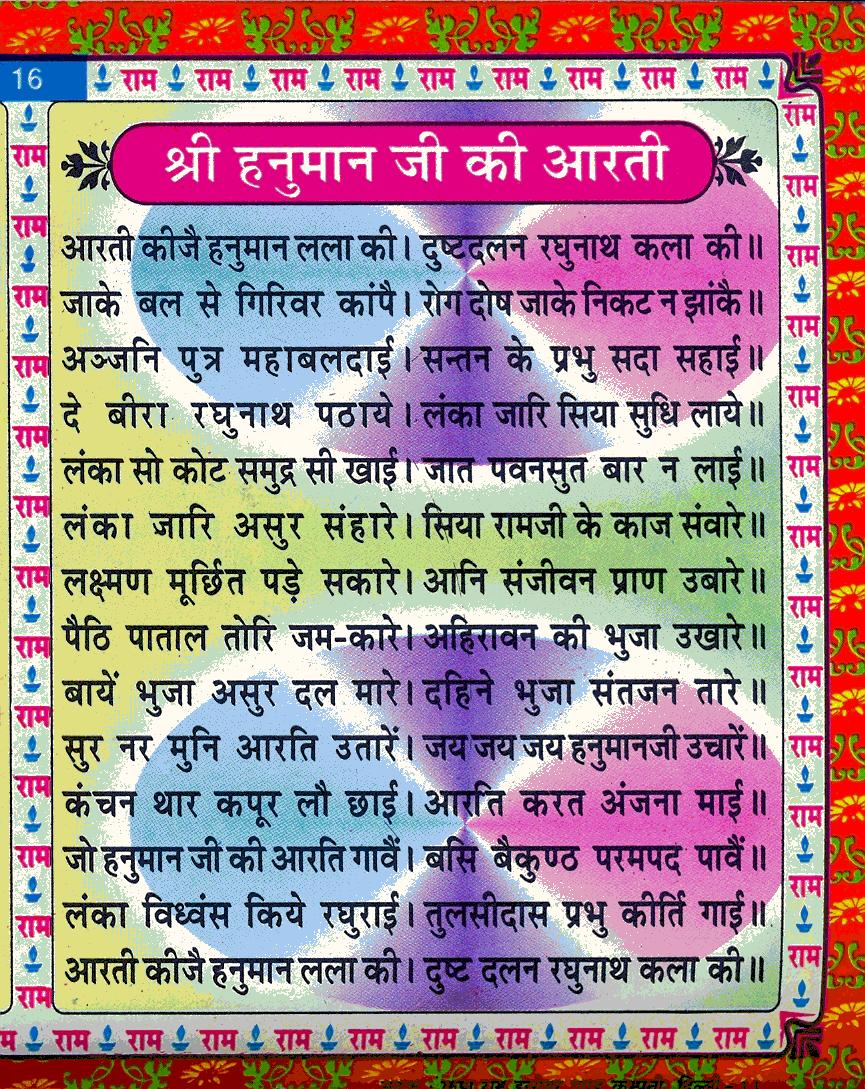 16
राम राम राम राम राम राम राम राम राम
श्री हनुमान जी की आरती
आरती कीजै हनुमान लला की। दुष्टदलन रघुनाथ कला की॥
जाके बल से गिरिवर कांपै। रोग दोष जाके निकट न झांकै॥
अञ्जनि पुत्र महाबलदाई। सन्तन के प्रभु सदा सहाई॥
दे बीरा रघुनाथ पठाये। लंका जारि सिया सुधि लाये॥
लंका सो कोट समुद्र सी खाई। जात पवनसुत बार न लाई॥
लंका जारि असुर संहारे। सिया रामजी के काज संवारे॥
लक्ष्मण मूर्छित पड़े सकारे। आनि संजीवन प्राण उबारे॥
पैठि पाताल तोरि जम-कारे। अहिरावन की भुजा उखारे॥
बायें भुजा असुर दल मारे। दहिने भुजा संतजन तारे॥
सुर नर मुनि आरति उतारें। जय जय जय हनुमानजी उचारें॥
कंचन थार कपूर लौ छाई। आरति करत अंजना माई॥
जो हनुमान जी की आरति गावैं। बसि बैकुण्ठ परमपद पावैं॥
लंका विध्वंस किये रघुराई। तुलसीदास प्रभु कीर्ति गाई॥
आरती कीजै हनुमान लला की। दुष्ट दलन रघुनाथ कला की॥
राम राम राम राम राम राम राम राम राम राम